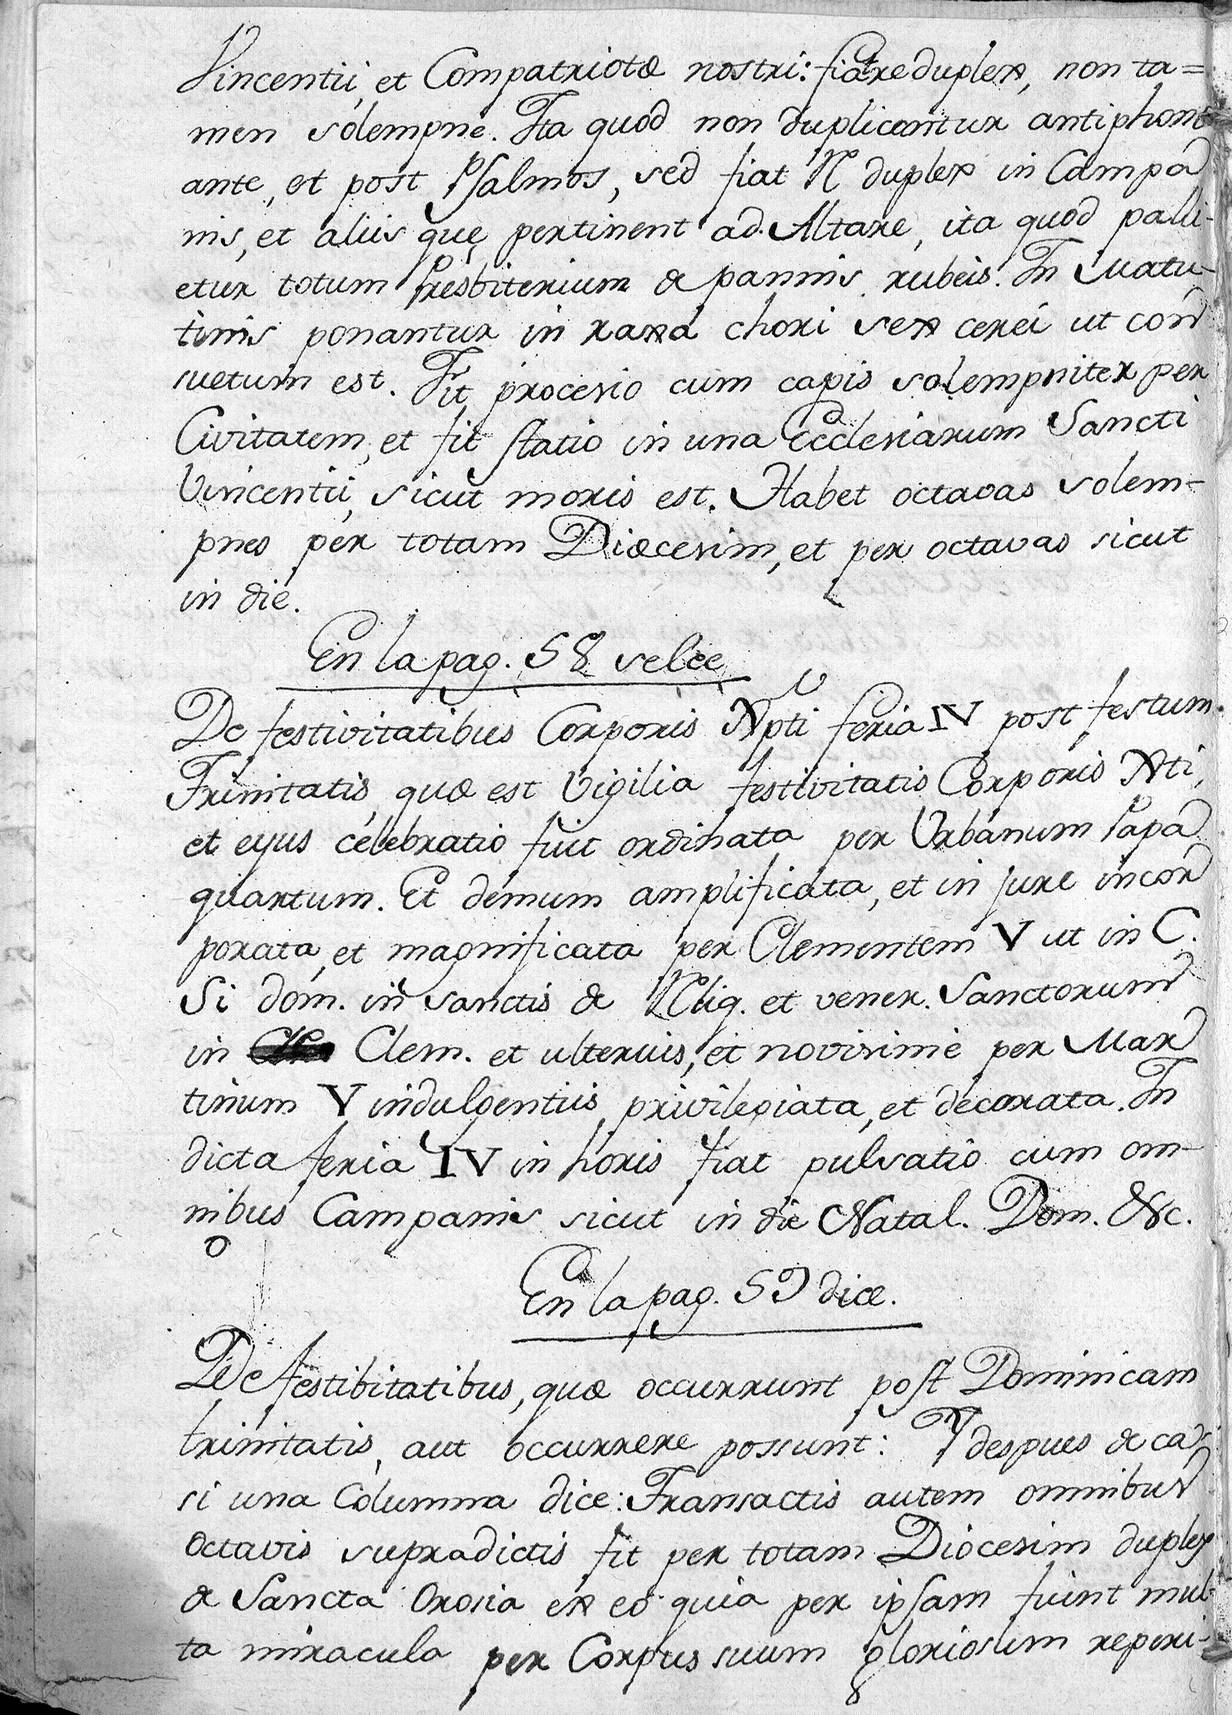 Vincentii, et Compatriotæ nostri: fiat re duplex, non ta=
men solempne. Ita quod non duplicentur antiphone
ante, et post Psalmos, sed fiat R duplex in Campa
nis, et aliis quę pertinent ad Altare, ita quod pali-
etur totum Presbiterium de pannis rubeis. In Matu-
tinis ponantur in raxa chori sex cerei ut con
suetum est. Fit procesio cum capis solempniter per
Civitatem, et fit statio in una Ecclesiarum Sancti
Vincentii, sicut moris est. Habet octavas solem-
pnes per totam Diœcesim, et per octavas sicut
in die.
En la pag. 58 se lee
De festivitatibus Corporis Xpti feria IV post festum
Trinitatis, quæ est Vigilia festivitatis Corporis Xti,
et ejus celebratio fuit ordinata per Urbanum Papa
quartum. Et demum amplificata, et in jure incor
porata, et magnificata per Clementem V ut in C.
Si dom. in sanctis de Reliq. et vener. Sanctorum
in Clem. et ulterius, et novisime per Mar
tinum V indulgentiis, privilegiata, et decorata. In
dicta feria IV in horis fiat pulsatio cum om-
nibus Campanis sicut in die Natal. Dom. &c.
En la pag. 59 dice.
De festibitatibus, quæ occurrunt post Dominicam
trinitatis, aut occurrere possunt: Y despues de ca
si una Columna dice: Transactis autem omnibus
octavis supradictis fit per totam Diocesim duplex
de Sancta Orosia ex eo quia per ipsam fiunt mul
ta miracula per Corpus suum gloriosum reperi-